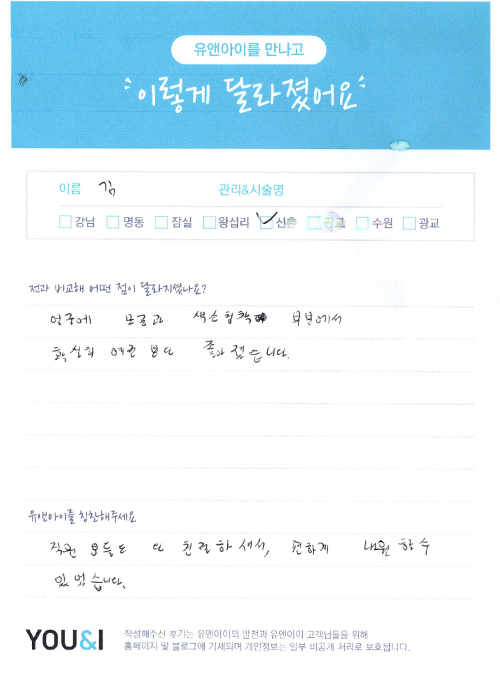 유앤아이를 만나고
이렇게 달라졌어요
이름 김 관리&시술명
강남 명동 잠실 왕십리 신촌 수원 광교
전과 비교해 어떤 점이 달라지셨나요?
모공과 색소침착 부분에서
확실히 예전 보다 좋아졌습니다.
유앤아이를 칭찬해주세요
직원 분들도 다 친절하세서, 편하게 내원 할 수
있었습니다.
YOU&I
작성해주신 후기는 유앤아이의 발전과 유앤아이 고객님들을 위해
홈페이지 및 블로그에 기재되며 개인정보는 일부 비공개 처리로 보호됩니다.